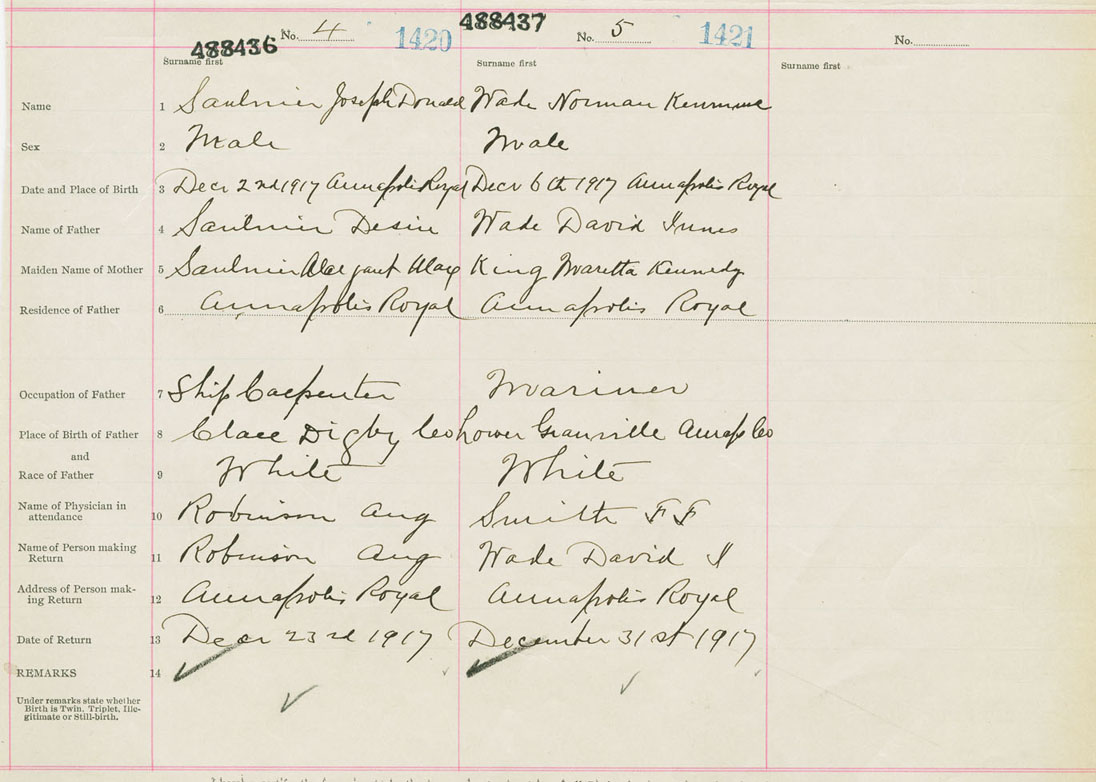 488436 No. 4 1420 488437 No. 5 1421 No.
Surname first Surname first Surname first
Name 1 Saulnier Joseph Donald Wade Norman
Sex 2 Male Male
Date and Place of Birth 3 Decr 2nd 1917 Annapolis Royal Decr 6th 1917 Annapolis Royal
Name of Father 4 Saulnier Desire Wade David Innes
Maiden Name of Mother 5 Saulnier Margaret Mary King Maretta Kennedy
Residence of Father 6 Annapolis Royal Annapolis Royal
Occupation of Father 7 Ship Carpenter Mariner
Place of Birth of Father 8 Clare Digby Co Lower Granville Annap Co
and
Race of Father 9 White White
Name of Physician in
attendance 10 Robinson Aug Smith F F
Name of Person making
Return 11 Robinson Aug Wade David I
Address of Person mak-
ing Return 12 Annapolis Royal Annapolis Royal
Date of Return 13 Decr 23rd 1917 December 31st 1917
REMARKS 14
Under remarks state whether
Birth is Twin, Triplet, Ille-
gitimate or Still-birth.